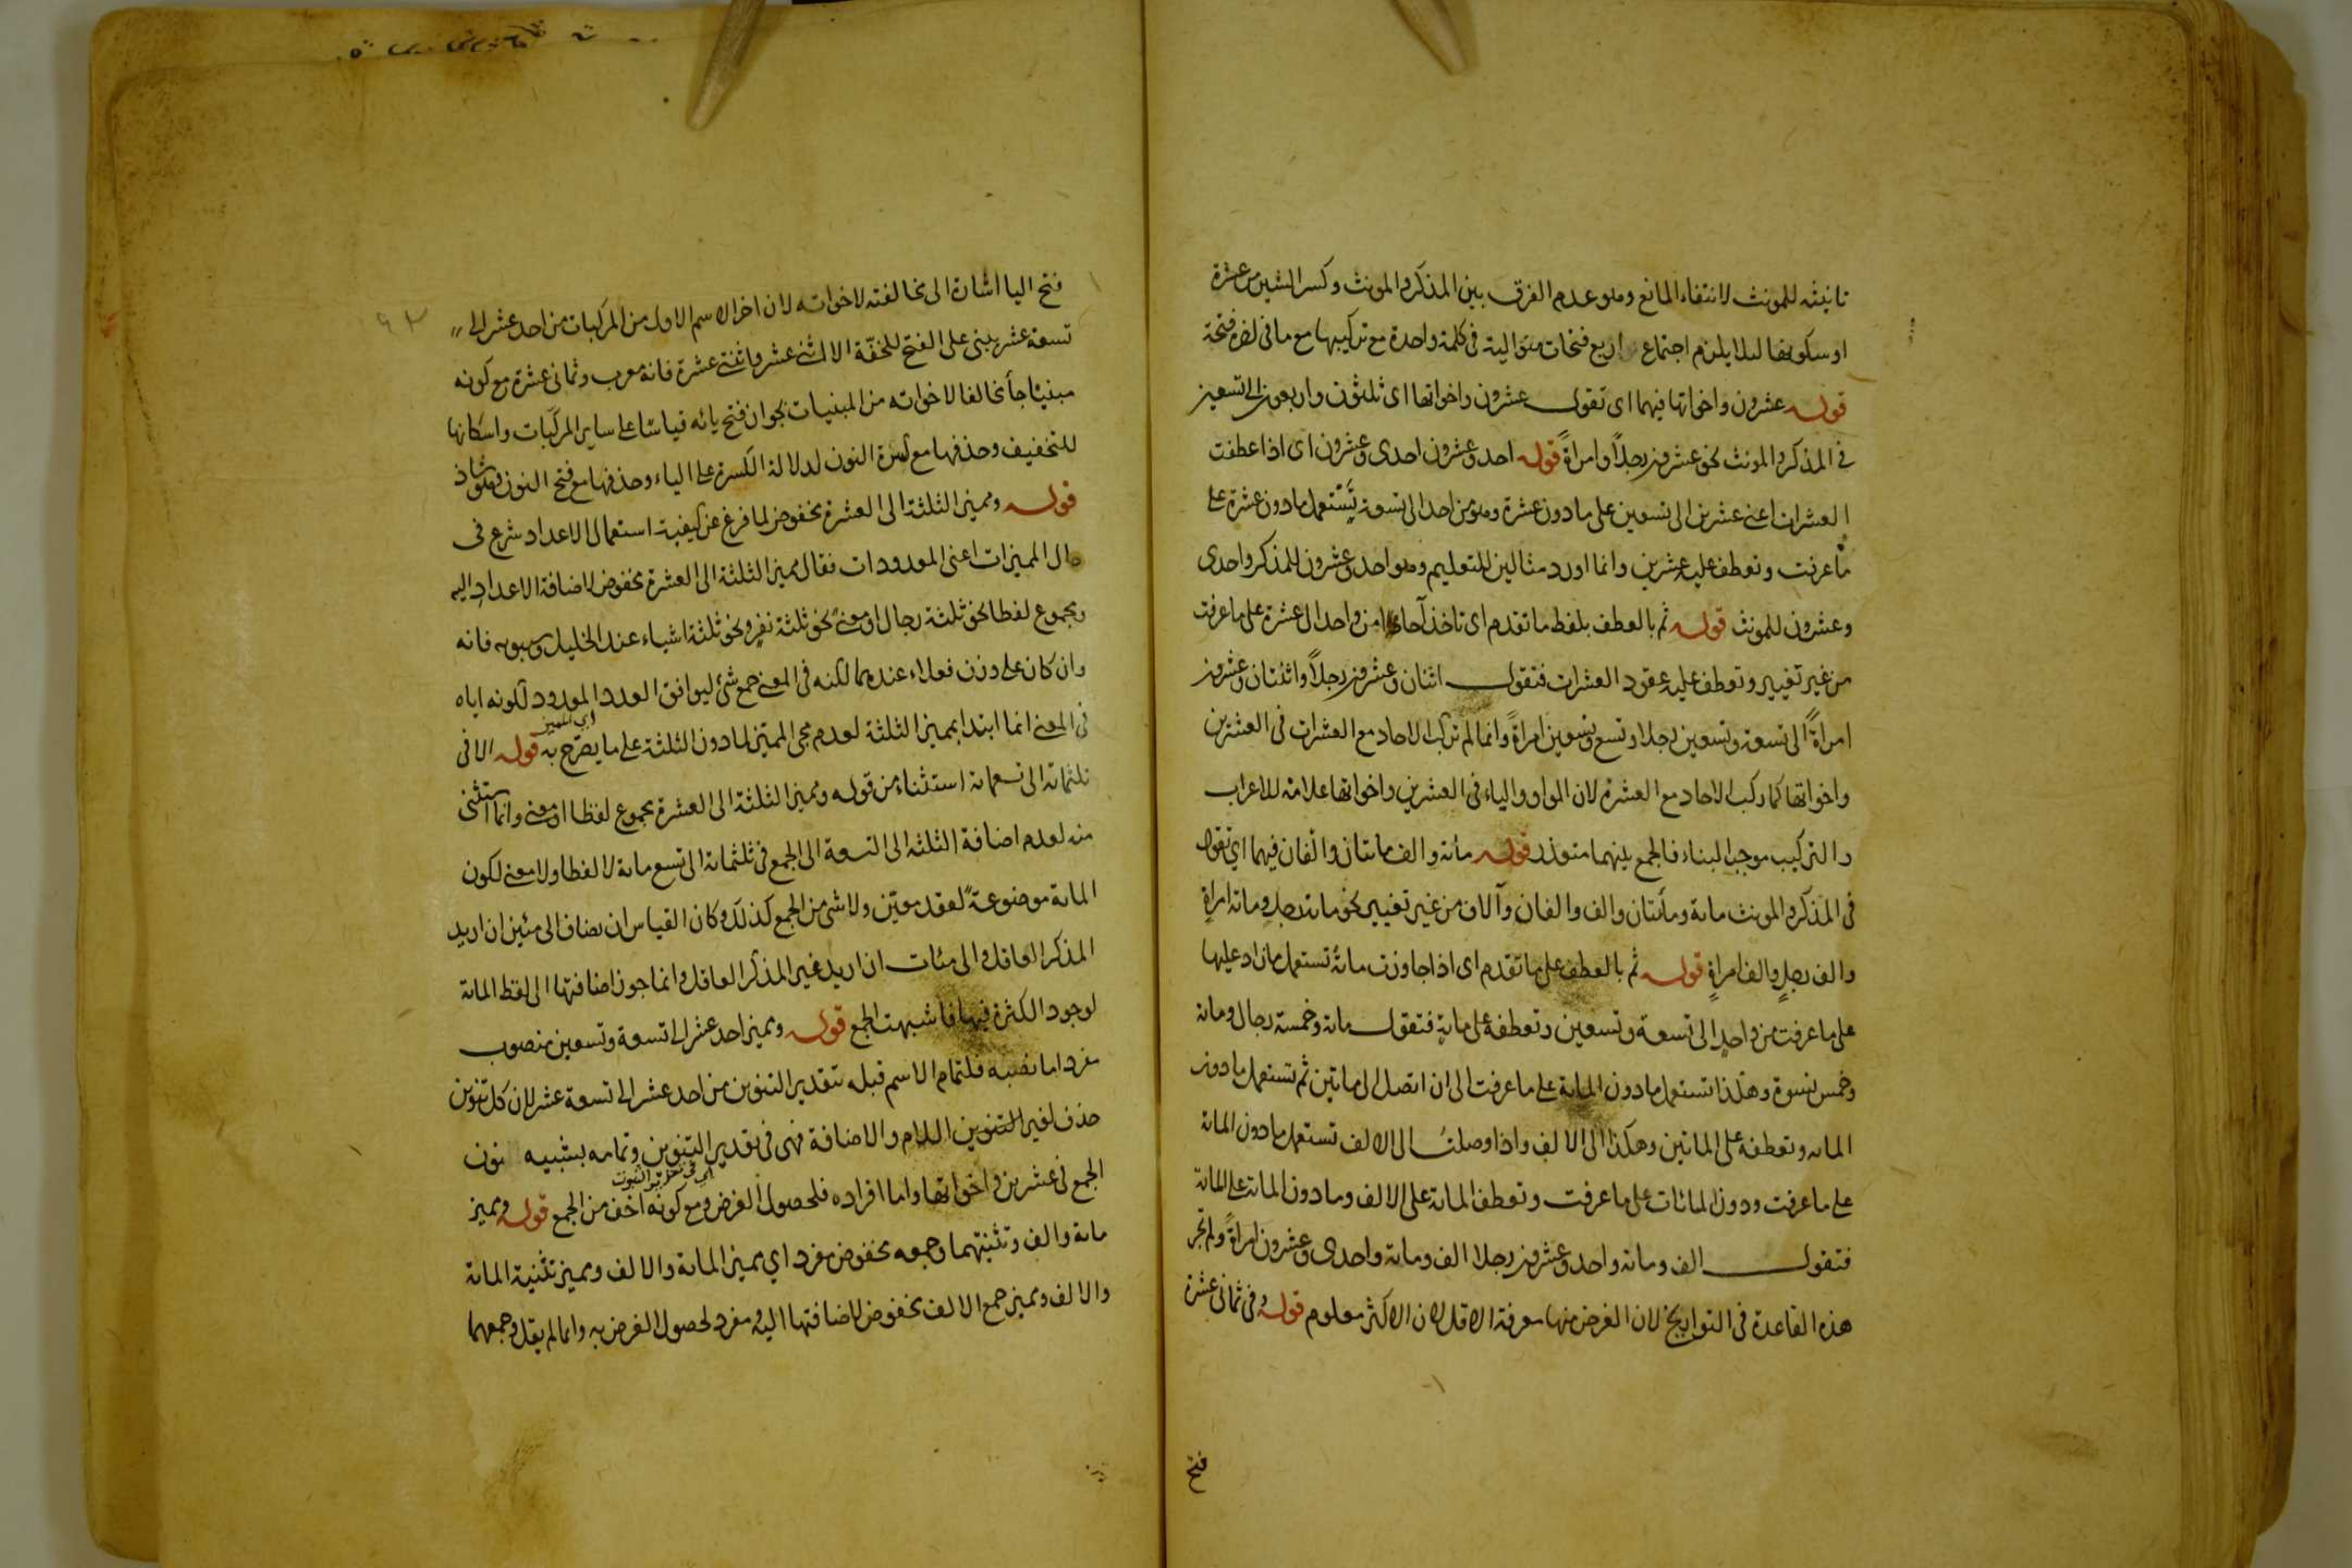 تانيثه للمونث لانتفاء المانع وهو عدم الفرق بين المذكر والمونث وكسر الشين من عشرة
او سكونها لئلا يلزم اجتماع اربع فتحات متوالية فى كلمة واحدة مع تركيبها مع ما فى اخره فتحة
قوله عشرون واخواتها فيهما اى تقول عشرون واخواتها اى ثلثون واربعون الى تسعين
فى المذكر والمونث نحو عشرون رجلاً وامراةً قوله احد وعشرون احدى وعشرون اى اذا عطفت
العشرات اعنى عشرين الى تسعين على ما دون عشرة وهو من احد الى تسعة يستعمل ما دون عشرة على
ما عرفت وتعطف عليه عشرين وانما اورد مثالين للتعليم وهو احد وعشرون للمذكر واحدى
وعشرون للمونث قوله ثم بالعطف بلفظ ما تقدم اى تاخذ آحادا من واحد الى عشرة على ما عرفت
من غير تغيير وتعطف عليه عقود العشرات فتقول اثنان وعشرون رجلاً واثنتان وعشرون
امراةً الى تسعة وتسعين رجلا وتسع وتسعين امراةً وانما لم تركب الاحاد مع العشرات فى العشرين
واخواتها كما ركب الاحاد مع العشرة لان الواو والياء فى العشرين واخواتها علامة للاعراب
والتركيب موجب البناء فالجمع بينهما متعذر قوله مائة والف مائتان والفان فيهما اي تقول
فى المذكر والمونث مائة ومأتتان والف والفان وآلاف من غير تغيير نحو مائة رجل ومائة امراةٍ
والف رجلٍ والف امراةٍ قوله ثم بالعطف على ما تقدم اى اذا جاوزت مائة تستعمل ما زاد عليها
على ما عرفت من واحدٍ الى تسعة وتسعين وتعطفه على مائةٍ فتقول مائة وخمسة رجال ومائة
وخمس نسوة وهكذا تستعمل ما دون المائة على ما عرفت الى ان اتصل الى مائتين ثم تستعمل ما دون
المائة وتعطفه على المائتين وهكذا الى الالف واذا وصلت الى الالف تستعمل ما دون المائة
على ما عرفت ودون المائات على ما عرفت وتعطف المائة على الالف وما دون المائة على المائة
فتقول الف ومائة واحد وعشرون رجلا الف ومائة واحدى وعشرون امراةً ولم تجر
هذه القاعدة فى التواريخ لان الغرض منها معرفة الاقل لان الاكثر معلوم قوله وفى ثمانى عشرة
فتح
فتح اليا اشارة الى مخالفته لاخواته لان اخر الاسم الاول من المركبات من احد عشر الى
تسعة عشر يبنى على الفتح للخفّة الا اثنى عشر واثنتى عشرة فانه معرب وثمانى عشرة مع كونه
مبنيًا جأ مخالفا لاخواته من المبنيات بجواز فتح يائه قياسًا على ساير المركّبات واسكانها
للتخفيف وحذفها مع كسرة النون لدلالة الكسرة على الياء وحذفها مع فتح النون وهو شاذ
قوله ومميز الثلثة الى العشرة مخفوض لما فرغ عن كيفية استعمال الاعداد شرع فى
حال المميزات اعنى المعدودات فقال مميز الثلثة الى العشرة مخفوض لاضافة الاعداد اليه
ومجموع لفظا نحو ثلثة رجال او معنىً نحو ثلثة نفرٍ ونحو ثلثة اشياء عند الخليل وسيبويه فانه
وان كان على وزن فعلاء عندهما لكنه فى المعنى جمع شئ ليوافق العدد المعدود لكونه اياه
اي المميز
فى المعنى انما ابتدا بمميز الثلثة لعدم مجى المميّز لما دون الثلثة على ما يصرّح به قوله الا فى
ثلثمائة الى تسعمائة استثناء من قوله ومميز الثلثة الى العشرة مجموع لفظا او معنى وانما استثنى
منه لعدم اضافة الثلثة الى التسعة الى الجمع فى ثلثمائة الى تسع مائة لا لفظا ولا معنى لكون
المائة موضوعةً لعقد معيّن ولا شى من الجمع كذلك وكان القياس ان يضاف الى مئين ان اريد
المذكر العاقل والى مئات ان اريد غير المذكر العاقل وانما جوز اضافتها الى لفظ المائة
لوجود الكثرة فيها فاشبهت الجمع قوله ومميز احد عشر الى تسعة وتسعين منصوب
مفرد اما نصبه فلتمام الاسم قبله بتقدير التنوين من احد عشر الى تسعة عشر لان كل تنوين
حذف لغير التنوين اللام والاضافة فهى فى تقدير التنوين وتمامه بشبيه نون
اي فى تقدير الثبوت
الجمع فى عشرين واخواتها واما افراده فلحصول الغرض ومع كونه اخف من الجمع قوله ومميز
مائة والف وتثنيتهما وجمعه مخفوض مفرد اي مميز المائة والالف ومميز تثنية المائة
والالف ومميز جمع الالف مخفوض لاضافتها اليه ومفرد لحصول الغرض به وانما لم يقل وجمعهما